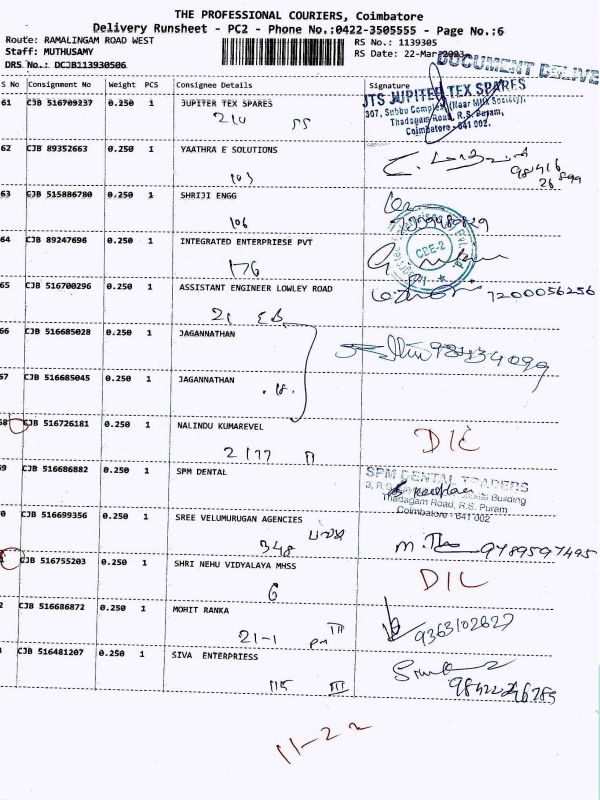 THE PROFESSIONAL COURIERS, Coimbatore
Delivery Runsheet - PC2 - Phone No.:0422-3505555 - Page No.:6
Route: RAMALINGAM ROAD WEST
RS No.: 1139305
Staff: MUTHUSAMY
RS Date: 22-Mar-2023
DRS No.: DCJB113930506
DOCUMENT DELIVE
S No Consignment No Weight PCS Consignee Details Signature
61 CJB 516709237 0.250 1 JUPITER TEX SPARES
210
JTS JUPITER TEX SPARES
307, Subbu Complex (Near Milk Society),
Thadagam Road, R.S. Puram,
Coimbatore - 641 002.
62 CJB 89352663 0.250 1 YAATHRA E SOLUTIONS
103
63 CJB 515886780 0.250 1 SHRIJI ENGG
106
64 CJB 89247696 0.250 1 INTEGRATED ENTERPRIESE PVT
176
CBE-2
65 CJB 516700296 0.250 1 ASSISTANT ENGINEER LOWLEY ROAD
21 EB
7200056256
66 CJB 516685028 0.250 1 JAGANNATHAN
67 CJB 516685045 0.250 1 JAGANNATHAN
68 CJB 516726181 0.250 1 NALINDU KUMAREVEL
2177
D/C
69 CJB 516686882 0.250 1 SPM DENTAL
SPM DENTAL TRADERS
Building
Thadagam Road, R.S. Puram
Coimbatore - 641 002
0 CJB 516699356 0.250 1 SREE VELUMURUGAN AGENCIES
348
9789597495
CJB 516755203 0.250 1 SHRI NEHU VIDYALAYA MHSS
6
D/L
2 CJB 516686872 0.250 1 MOHIT RANKA
21-1
9363102627
CJB 516481207 0.250 1 SIVA ENTERPRIESS
115 III
9842246785
11-22